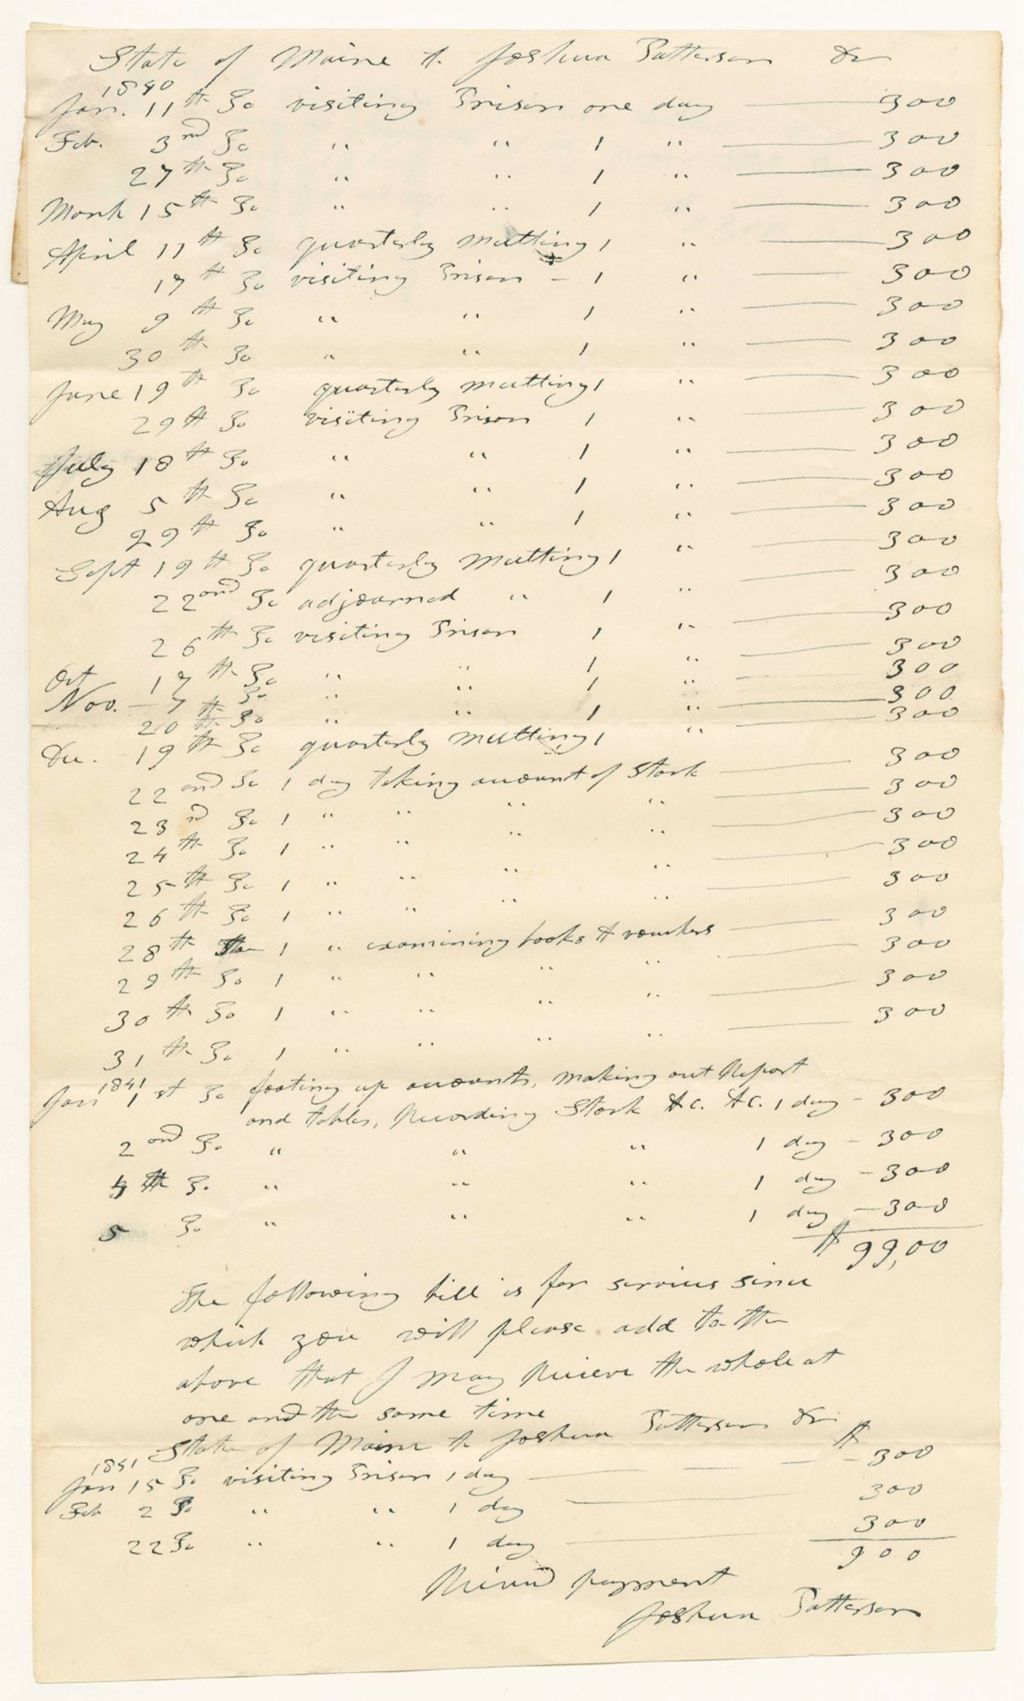 State of Maine to Joshua Patterson Dr
1840
Jan. 11th To visiting Prison one day 300
Feb. 3rd To " " 1 " 300
27th To " " 1 " 300
March 15th To " " 1 " 300
April 11th To quarterly meetting 1 " 300
17th To visiting Prison - 1 " 300
May 9th To " " 1 " 300
30th To " " 1 " 300
June 19th To quarterly meetting 1 " 300
29th To visiting Prison 1 " 300
July 18th To " " 1 " 300
Aug 5th To " " 1 " 300
29th To " " 1 " 300
Sept 19th To quarterly meetting 1 " 300
22ond To adjourned " 1 " 300
26th To visiting Prison 1 " 300
Oct 17th To " " 1 " 300
Nov. 7th To " " 1 " 300
20th To " " 1 " 300
Dec. 19th To quarterly meetting 1 " 300
22ond To 1 day taking account of Stock 300
23rd To 1 " " " " 300
24th To 1 " " " " 300
25th To 1 " " " " 300
26th To 1 " " " " 300
28th To 1 " examining books & vouchers 300
29th To 1 " " " " 300
30th To 1 " " " " 300
31th To 1 " " " " 300
1841
Jan 1st To footing up accounts, making out Report
and tables, Recording Stock &c. &c. 1 day - 300
2ond To " " " 1 day - 300
4th To " " " 1 day - 300
5 To " " " 1 day - 300
$ 99,00
The following bill is for services since
which you will please add to the
above that I may Recieve the whole at
one and the same time
State of Maine to Joshua Patterson Dr
1841 $
Jan 15 To visiting Prison 1 day 300
Feb 2 To " " 1 day 300
22 To " " 1 day 300
900
Recieved payment
Joshua Patterson